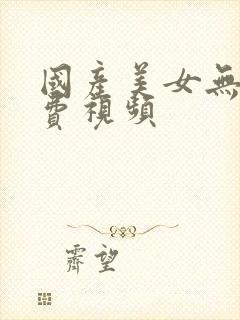 國產美女無
費視頻
霽望